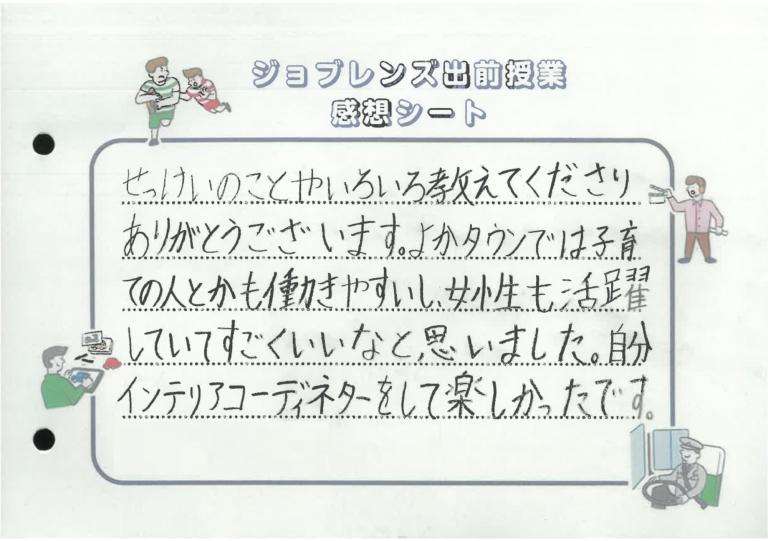 ジョブレンズ出前授業
感想シート
せっけいのことやいろいろ教えてくださり
ありがとうございます。よかタウンでは子育
ての人とかも働きやすいし、女性生も活躍
していてすごくいいなと思いました。自分
インテリアコーディネターをして楽しかったです。